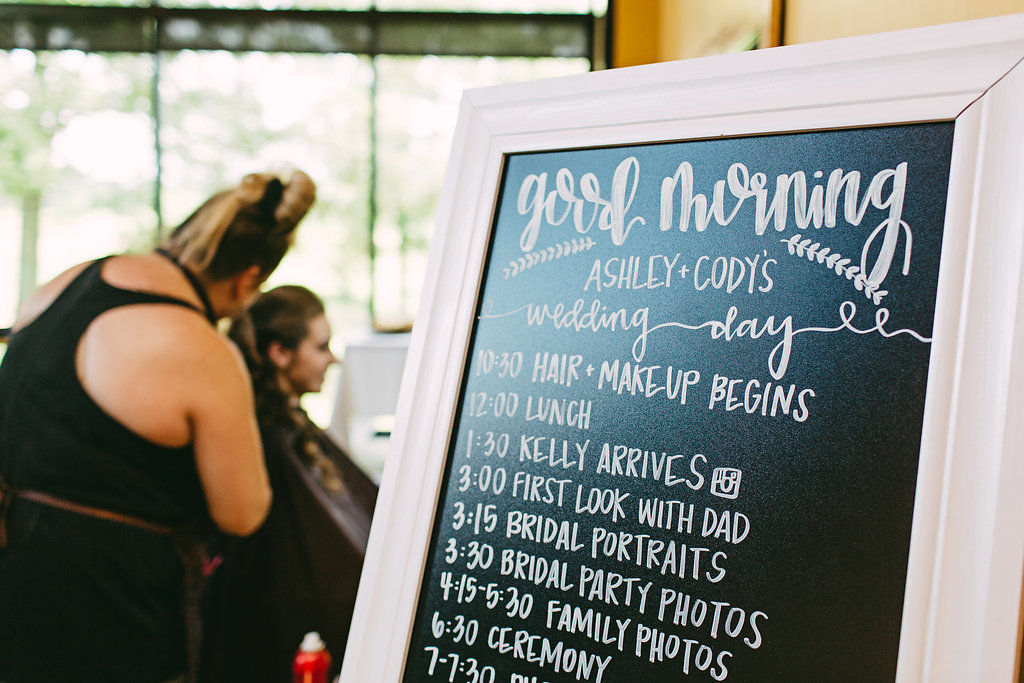 good morning
ASHLEY + CODY'S
wedding day
10:30 HAIR + MAKEUP BEGINS
12:00 LUNCH
1:30 KELLY ARRIVES
3:00 FIRST LOOK WITH DAD
3:15 BRIDAL PORTRAITS
3:30 BRIDAL PARTY PHOTOS
4:15-5:30 FAMILY PHOTOS
6:30 CEREMONY
7-7:30